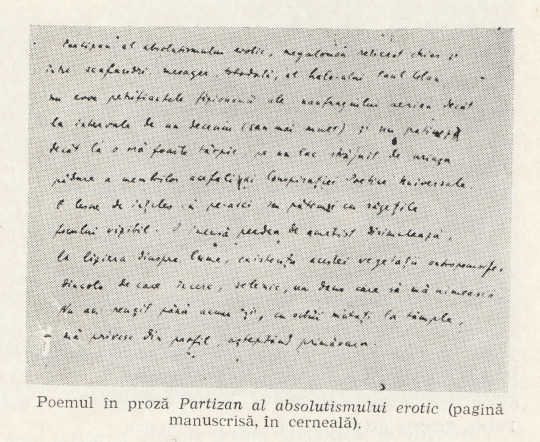 Partizan al absolutismului erotic, megaloman reticent chiar și
între scafandri, mesager, totodată, al halo-ului Paul Celan
nu evoc petrifiantele fizionomii ale naufragiului aerian decât
la intervale de un deceniu (sau mai mult) și nu patinez
decât la o oră foarte târzie, pe un lac străjuit de uriașa
pădure a membrilor acefali ai Conspirației Poetice Universale
E lesne de înțeles că pe-aici nu pătrunzi cu săgețile
focului vizibil. O imensă perdea de ametist disimulează,
la liziera dinspre lume, existența acestei vegetații antropomorfe,
dincolo de care încerc, selenic, un dans care să mă uimească
Nu am reușit până acum și, cu ochii mutați la tâmple,
mă privesc din profil, așteptând primăvara.
Poemul în proză Partizan al absolutismului erotic (pagină
manuscrisă, în cerneală).